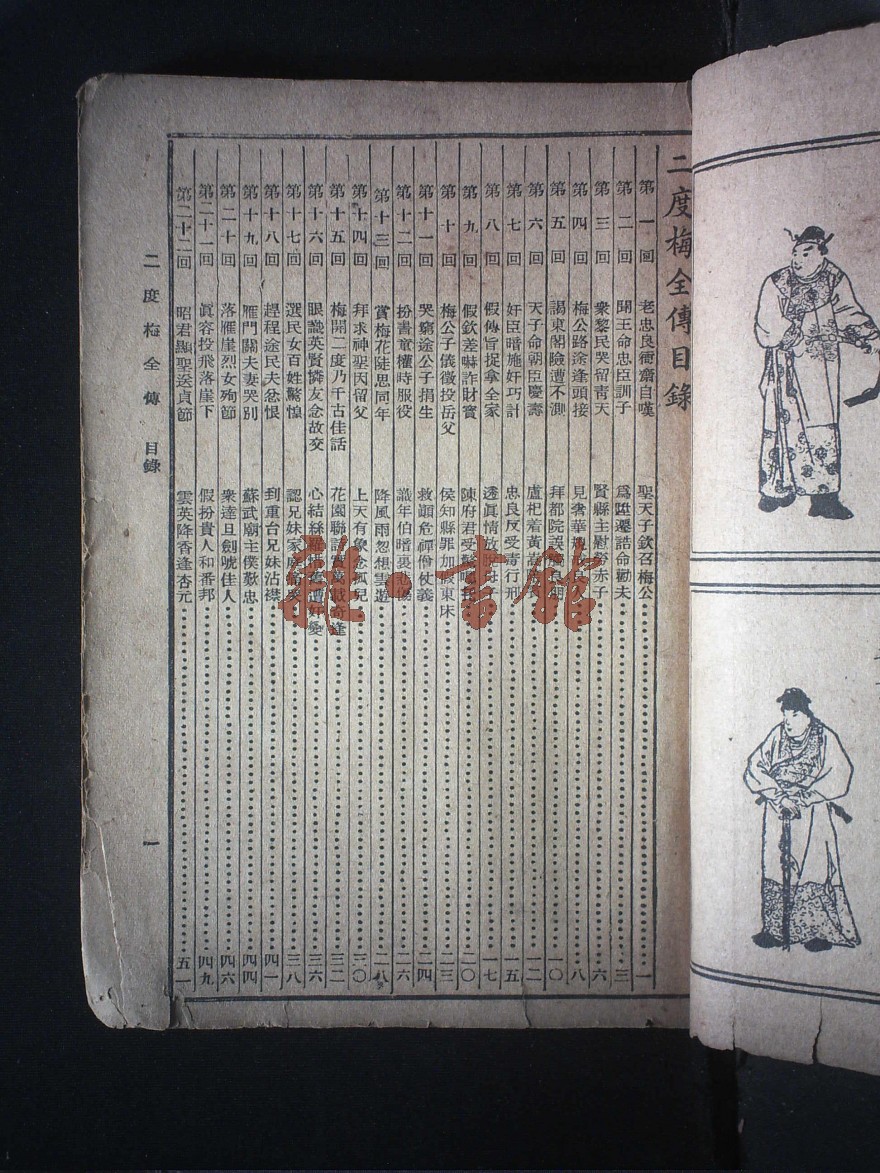 二度梅全傳目錄
第一回 老忠良衙齋自嘆 聖天子欽召梅公 一
第二回 聞王命忠臣訓子 爲陞遷誥命勸夫 三
第三回 衆黎民哭留靑天 賢縣主慰勞赤子 六
第四回 梅公路途逢頭接 見奢華 八
第五回 謁東閣險遭不測 拜都院 一〇
第六回 天子命朝臣慶壽 盧杞着黃嵩 一二
第七回 奸臣暗施奸巧計 忠良反受毒行刑 一五
第八回 假傳旨捉拿全家 透眞情放 一七
第九回 假欽差嚇詐財寶 陳府君受 二〇
第十回 梅公子儀徵投岳父 侯知縣罪加 東床 二三
第十一回 哭窮途公子捐生 救顚危禪僧仗義 二四
第十二回 扮書童權時服役 識年伯暗 二六
第十三回 賞梅花陡思同年 降風雨忽想雲遊 二八
第十四回 拜求神聖因留父 上天有 三〇
第十五回 梅開二度乃千古佳話 花園聯 奇逢 三二
第十六回 眼識英賢憐友念故交 心結絲 遭奸變 三六
第十七回 選民女百姓驚惶 認兄妹家庭 三八
第十八回 趕程途民夫忿恨 到重台兄妹沾襟 四一
第十九回 雁門關夫妻哭別 蘇武廟主僕歎忠 四四
第二十回 落雁崖烈女殉節 衆達旦劍唬佳人 四六
第二十一回 眞容投飛落崖下 假扮貴人和番邦 四九
第二十二回 昭君顯聖送貞節 雲英降香逢杏元 五一
二度梅全傳 目錄 一
雜·書館